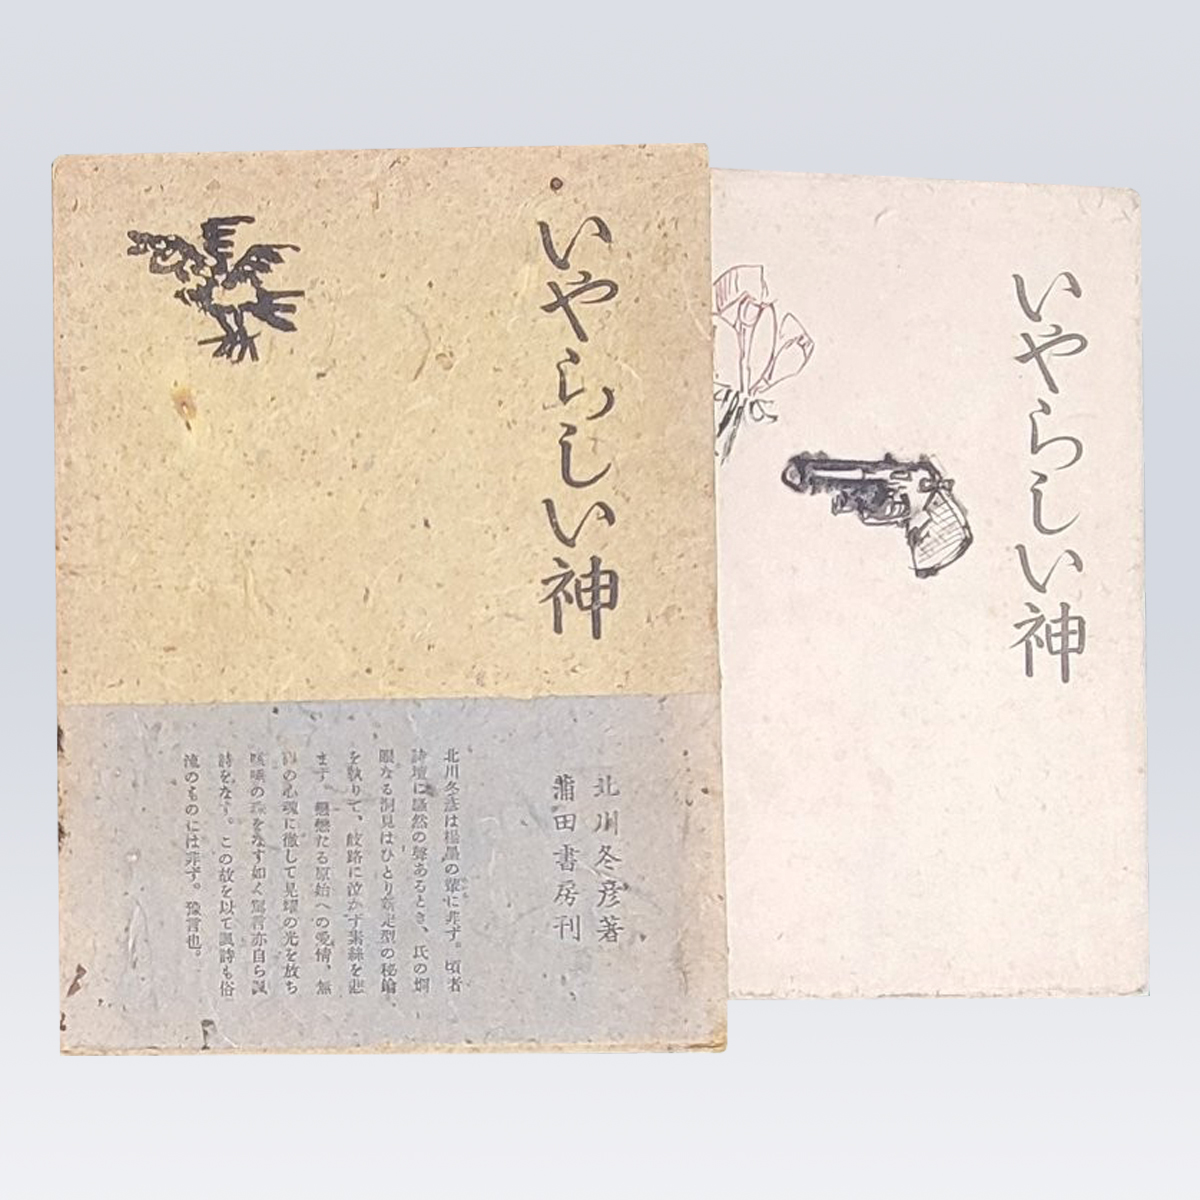 いやらしい神
いやらしい神
北川冬彦著
蒲田書房刊
北川冬彦は楊墨の輩に非ず。頃者
詩壇に騒然の聲あるとき、氏の烱
眼なる洞見はひとり新定型の秘鑰
を執りて、岐路に泣かず素絲を悲
まず。戀戀たる原始への愛情、無
の心魂に徹して見燿の光を放ち
の珠をなす如く寓言亦自ら諷
詩をなす。この故を以て諷詩も俗
流のものには非ず。豫言也。